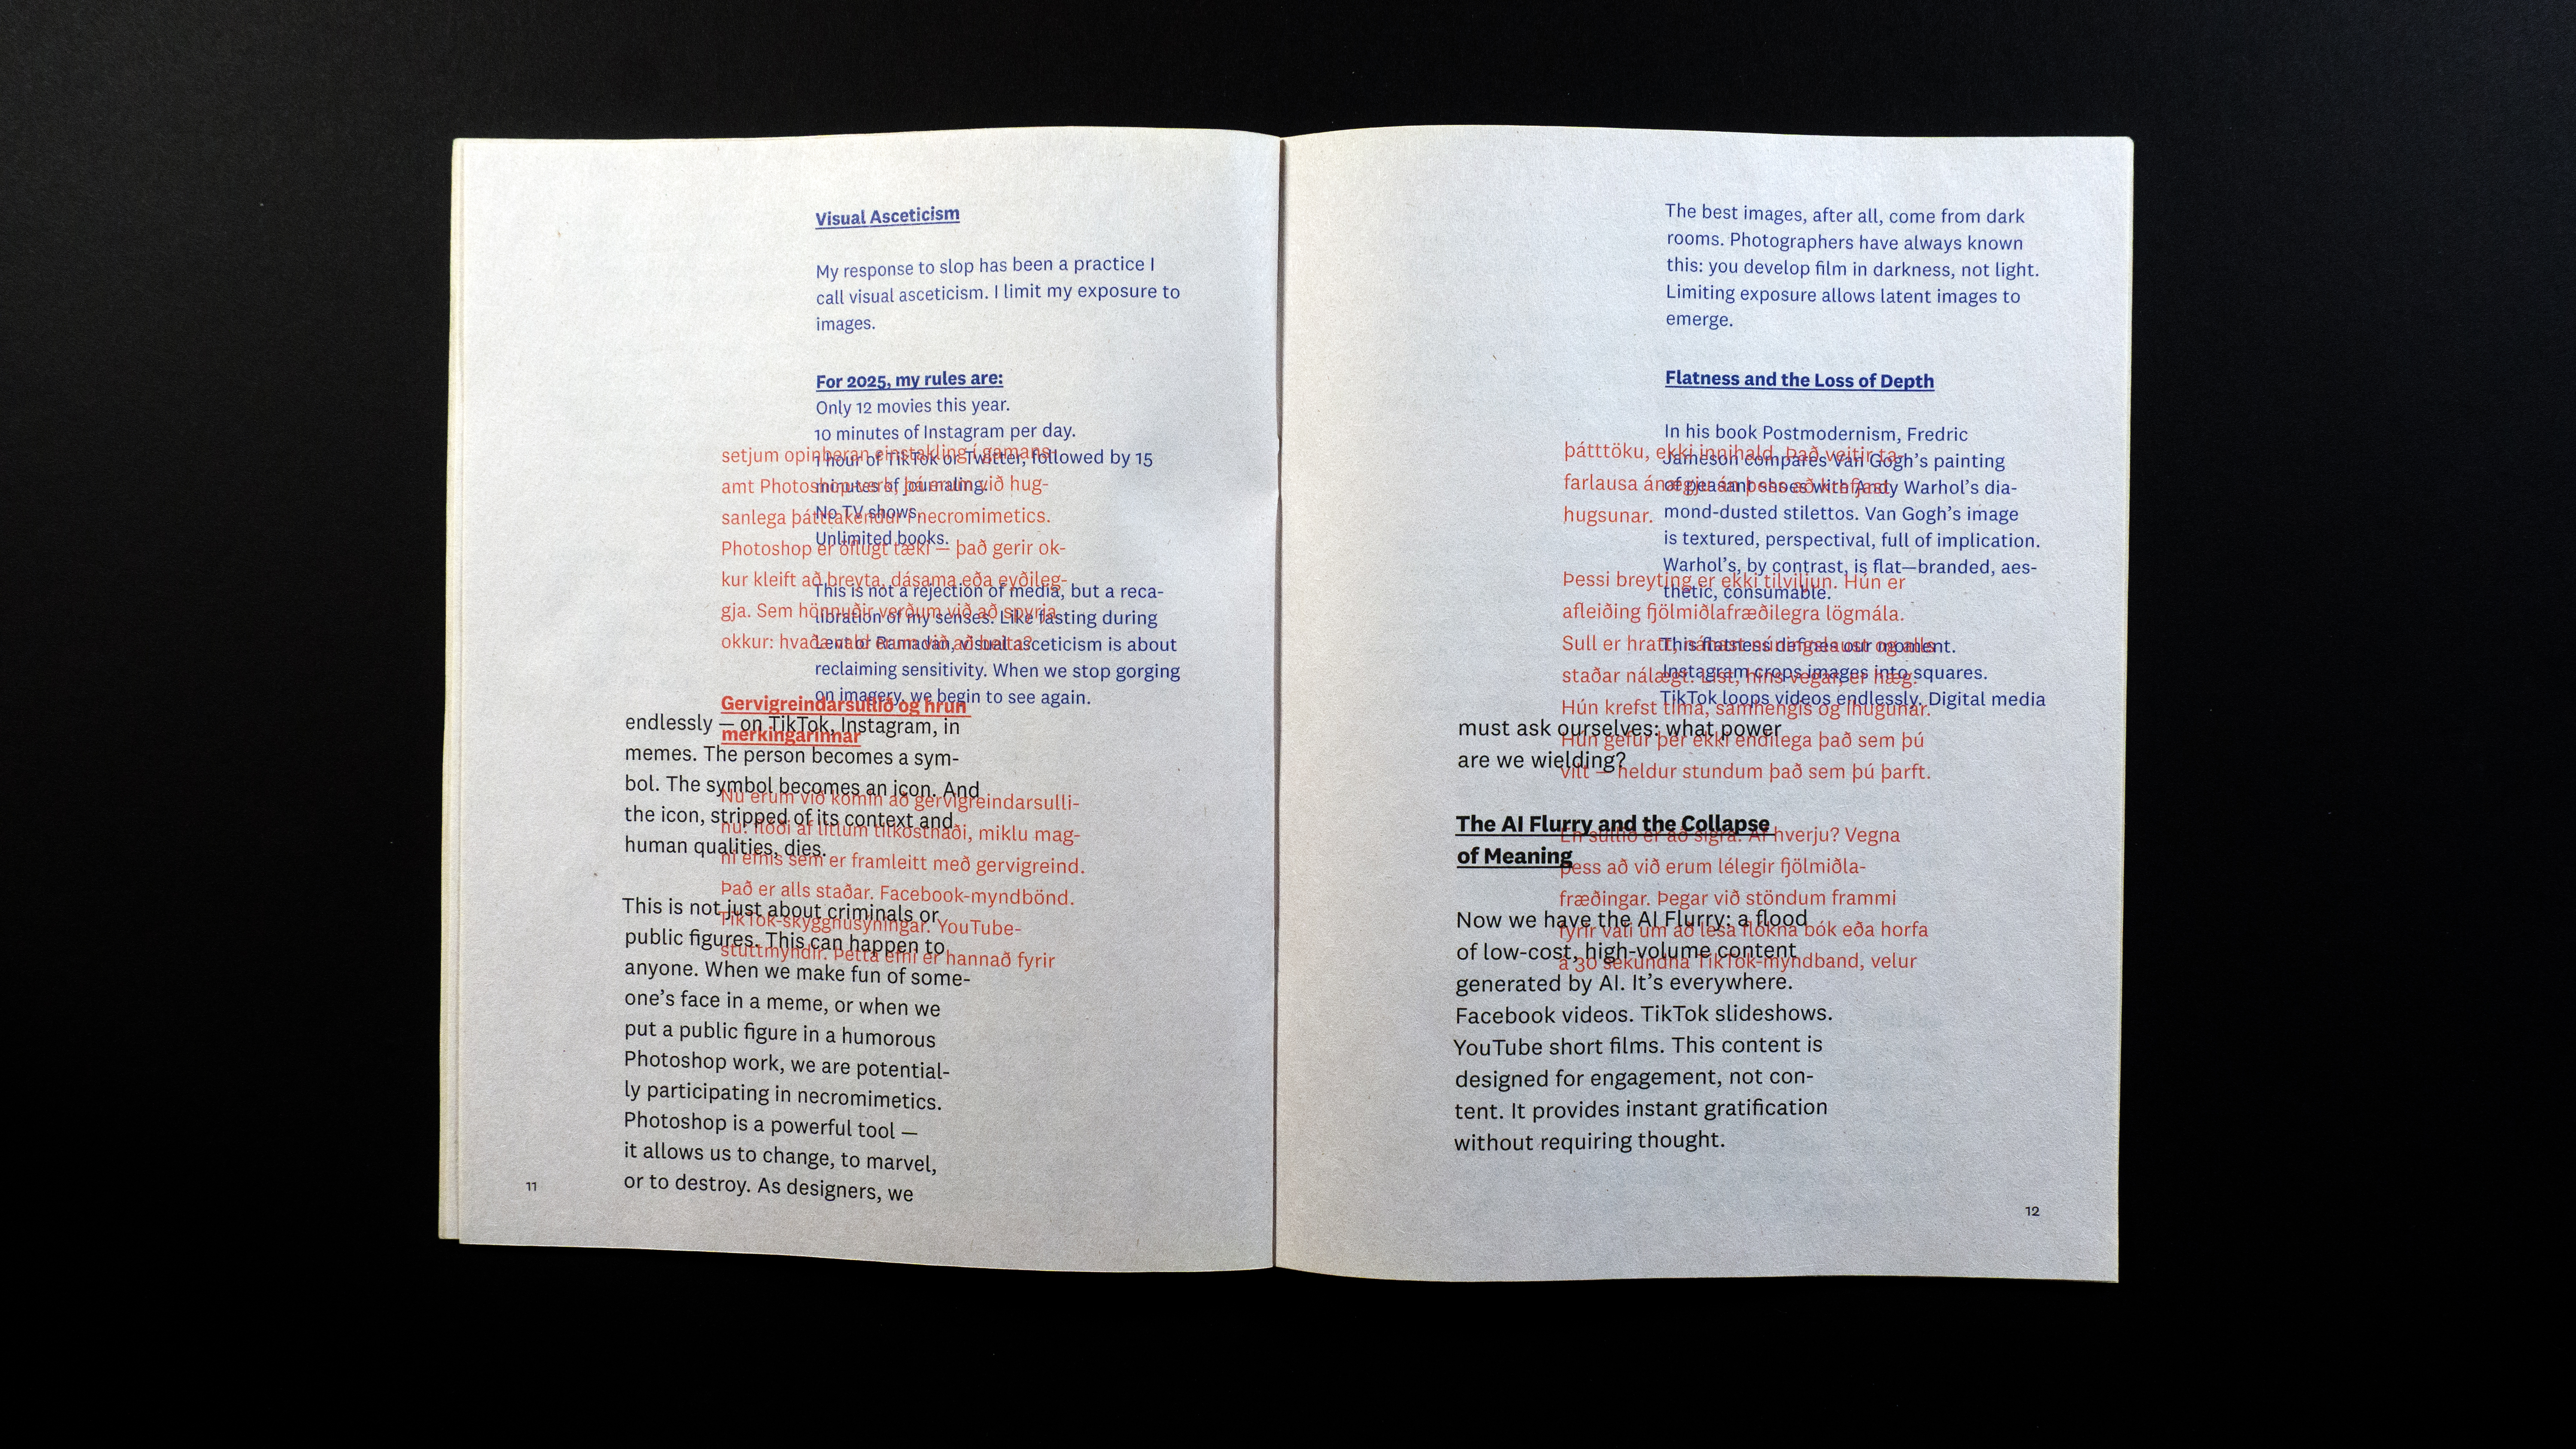 Visual Asceticism
My response to slop has been a practice I
call visual asceticism. I limit my exposure to
images.
For 2025, my rules are:
Only 12 movies this year.
10 minutes of Instagram per day.
1 hour of TikTok or Twitter, followed by 15
minutes of journaling.
No TV shows.
Unlimited books.
This is not a rejection of media, but a reca-
libration of my senses. Like fasting during
Lent or Ramadan, visual asceticism is about
reclaiming sensitivity. When we stop gorging
on imagery, we begin to see again.
setjum opinberan einstakling í gamans-
amt Photoshop-verk, þá erum við hug-
sanlega þátttakendur í necromimetics.
Photoshop er öflugt tæki — það gerir ok-
kur kleift að breyta, dásama eða eyðileg-
gja. Sem hönnuðir verðum við að spyrja
okkur: hvaða vald erum við að beita?
Gervigreindarsullið og hrun
merkingarinnar
Nú erum við komin að gervigreindarsulli-
nu: flóði af litlum tilkostnaði, miklu mag-
ni efnis sem er framleitt með gervigreind.
Það er alls staðar. Facebook-myndbönd.
TikTok-skyggnusýningar. YouTube-
stuttmyndir. Þetta efni er hannað fyrir
endlessly — on TikTok, Instagram, in
memes. The person becomes a sym-
bol. The symbol becomes an icon. And
the icon, stripped of its context and
human qualities, dies.
This is not just about criminals or
public figures. This can happen to
anyone. When we make fun of some-
one’s face in a meme, or when we
put a public figure in a humorous
Photoshop work, we are potential-
ly participating in necromimetics.
Photoshop is a powerful tool —
it allows us to change, to marvel,
or to destroy. As designers, we
11
The best images, after all, come from dark
rooms. Photographers have always known
this: you develop film in darkness, not light.
Limiting exposure allows latent images to
emerge.
Flatness and the Loss of Depth
In his book Postmodernism, Fredric
Jameson compares Van Gogh’s painting
of peasant shoes with Andy Warhol’s dia-
mond-dusted stilettos. Van Gogh’s image
is textured, perspectival, full of implication.
Warhol’s, by contrast, is flat—branded, aes-
thetic, consumable.
This flatness defines our moment.
Instagram crops images into squares.
TikTok loops videos endlessly. Digital media
þátttöku, ekki innihald. Það veitir ta-
farlausa ánægju án þess að krefjast
hugsunar.
Þessi breyting er ekki tilviljun. Hún er
afleiðing fjölmiðlafræðilegra lögmála.
Sull er hratt, og alls
staðar nálægt. List, hins vegar, er hæg.
Hún krefst tíma, samhengis og íhugunar.
Hún gefur þér ekki endilega það sem þú
vilt — heldur stundum það sem þú þarft.
En sullið er að sigra. Af hverju? Vegna
þess að við erum lélegir fjölmiðla-
fræðingar. Þegar við stöndum frammi
fyrir vali um að lesa flókna bók eða horfa
á 30 sekúndna TikTok-myndband, velur
must ask ourselves: what power
are we wielding?
The AI Flurry and the Collapse
of Meaning
Now we have the AI Flurry: a flood
of low-cost, high-volume content
generated by AI. It’s everywhere.
Facebook videos. TikTok slideshows.
YouTube short films. This content is
designed for engagement, not con-
tent. It provides instant gratification
without requiring thought.
12